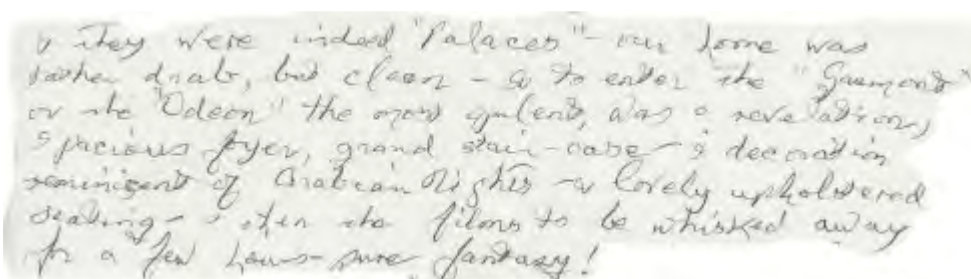 & they were indeed "Palaces" - our home was
rather drab, but clean - & to enter the "Gaumont"
or the "Odeon" the most opulent, was a revelation,
spacious foyer, grand stair-case - & decoration
reminiscent of Arabian Nights - & lovely upholstered
seating - & then the films to be whisked away
for a few hours - pure fantasy!